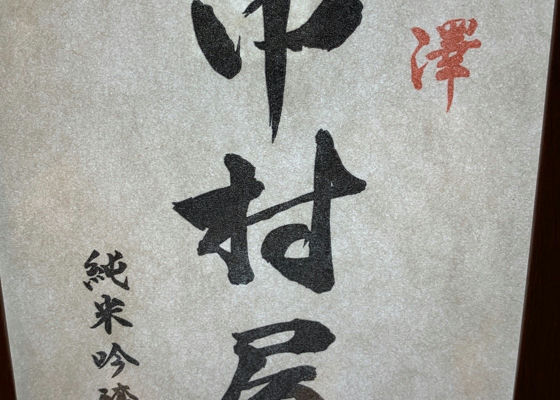 澤
中村屋
純米吟